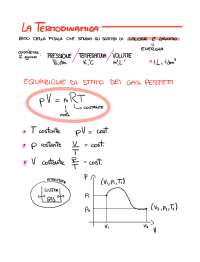 LA TERMODINAMICA
RAMO DELLA FISICA CHE STUDIA GLI SCAMBI DI CALORE E LAVORO
ENERGIA
PRESSIONE / TEMPERATURA / VOLUME
Pa, atm K, °C m³, l
* 1L = 1 dm³
EQUAZIONE DI STATO DEI GAS PERFETTI
pV = nRT
COSTANTE
moli
* T costante pV = cost.
* p costante V/T = cost.
* V costante P/T = cost.
SISTEMA
GAS
P
(V₁, P₁, T₁)
P₁
P₂
(V₂, P₂, T₂)
V₁ V₂ V